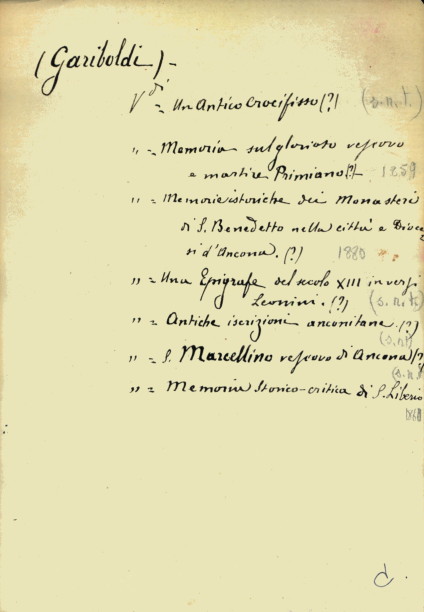 (Gariboldi) -
V di = Un Antico Crocifisso (?) (s.n.t.)
" = Memoria sul glorioso vescovo
e martire Primiano (?) 1259
" = Memorie istoriche dei Monasteri
di S. Benedetto nella città e Dioce
si d'Ancona. (?) 1880
" = Una Epigrafe del secolo XIII in versi
Leonini. (?) (s.n.t.
" = Antiche iscrizioni anconitane. (?)
(s.nt)
" = S. Marcellino vescovo di Ancona (?
(s.n.t
" = Memorie Storico-critica di S. Liberio
d.